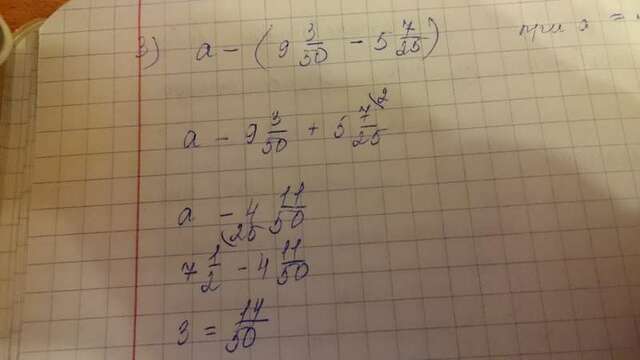 3) a - (9 3/50 - 5 7/25) при
a - 9 3/50 + 5 7/25 (2
a - 4 11/50
7 1/2 (25 - 4 11/50
3 = 14/50